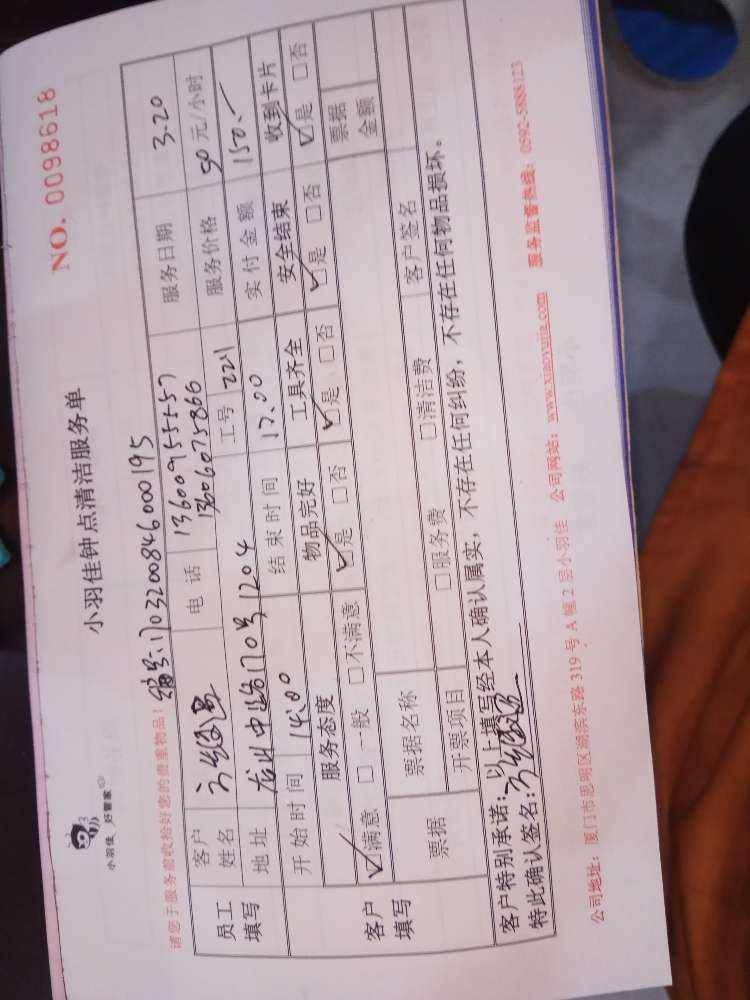 小羽佳 好管家
小羽佳钟点清洁服务单
NO. 0098618
请您于服务前收拾好您的贵重物品!
编号:1703200846000195
员工填写
客户姓名
电 话 13600955457
13606075866
服务日期 3.20
地 址 170号1204
工号 221
服务价格 50 元/小时
开始时间 14:00
结束时间 17.00
实付金额 150.-
客户填写
服务态度 物品完好 工具齐全 安全结束 收到卡片
☑满意 □一般 □不满意 ☑是 □否 ☑是 □否 ☑是 □否 ☑是 □否
票据
票据名称
票据金额
开票项目 □服务费 □清洁费 客户签名
客户特别承诺:以上填写经本人确认属实,不存在任何纠纷,不存在任何物品损坏。
特此确认签名:
公司地址:厦门市思明区湖滨东路 319 号 A 幢 2 层小羽佳 公司网站:www.xiaoyujia.com 服务监督热线:0592-5888123